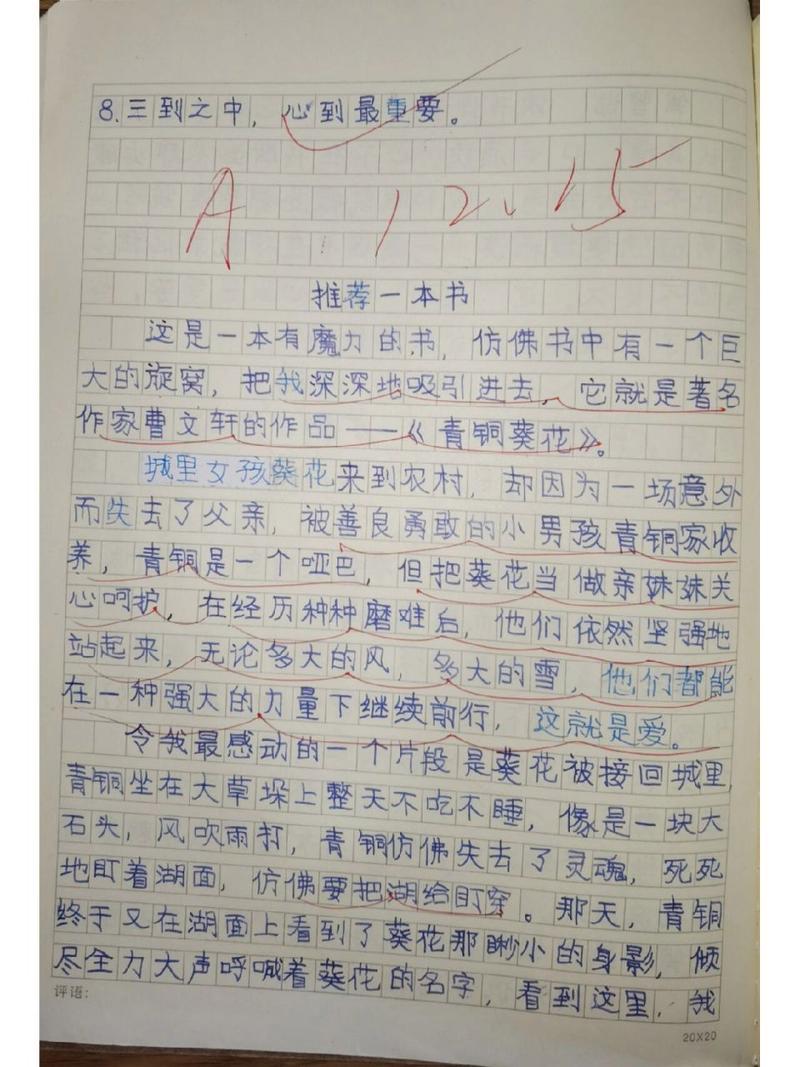 8.三到之中，心到最重要。
A 12.15
推荐一本书
这是一本有魔力的书，仿佛书中有一个巨
大的旋窝，把我深深地吸引进去，它就是著名
作家曹文轩的作品——《青铜葵花》。
城里女孩葵花来到农村，却因为一场意外
而失去了父亲，被善良勇敢的小男孩青铜家收
养，青铜是一个哑巴，但把葵花当做亲妹妹关
心呵护，在经历种种磨难后，他们依然坚强地
站起来，无论多大的风，多大的雪，他们都能
在一种强大的力量下继续前行，这就是爱。
令我最感动的一个片段是葵花被接回城里，
青铜坐在大草垛上整天不吃不睡，像是一块大
石头，风吹雨打，青铜仿佛失去了灵魂，死死
地盯着湖面，仿佛要把湖给盯穿。那天，青铜
终于又在湖面上看到了葵花那瘦小的身影，倾
尽全力大声呼喊着葵花的名字，看到这里，我
评语：
20X20